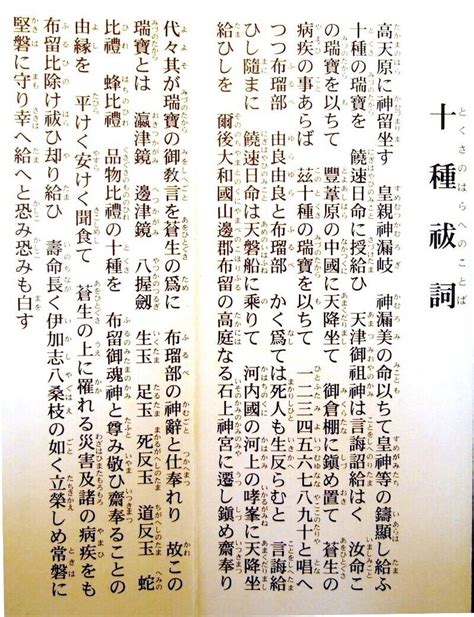 十種祓詞
とくさのはらへのことば
高天原に神留坐す　皇親神漏岐　神漏美の命以ちて皇神等の鑄顯し給ふ
十種の瑞寶を　饒速日命に授給ひ　天津御祖神は言誨詔給はく　汝命こ
の瑞寶を以ちて　豐葦原の中國に天降坐て　御倉棚に鎭め置て　蒼生の
病疾の事あらば　玆十種の瑞寶を以ちて　一二三四五六七八九十と唱へ
つつ布瑠部　由良由良と布瑠部　かく爲ては死人も生反らむと　言誨給
ひし隨まに　饒速日命は天磐船に乘りて　河内國の河上の哮峯に天降坐
給ひしを　爾後大和國山邊郡布留の高庭なる石上神宮に遷し鎭め齋奉り
代々其が瑞寶の御教言を蒼生の爲に　布瑠部の神辭と仕奉れり　故この
瑞寶とは　瀛津鏡　邊津鏡　八握劔　生玉　足玉　死反玉　道反玉　蛇
比禮　蜂比禮　品物比禮の十種を　布留御魂神と尊み敬ひ齋奉ることの
由縁を　平けく安けく聞食て　蒼生の上に罹れる災害及諸の病疾をも
布留比除け祓ひ却り給ひ　壽命長く伊加志八桑枝の如く立榮しめ常磐に
堅磐に守り幸へ給へと恐み恐みも白す